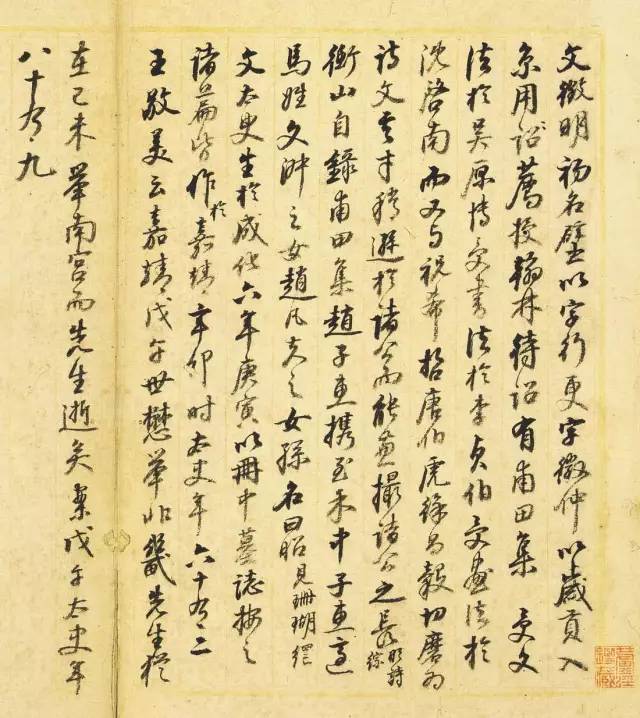 文徵明初名壁以字行更字徵仲以歲貢入
京用詔薦授翰林待詔有甫田集 受文
法於吳原博受書法於李貞伯受畫法於
沈啓南而又与祝希哲唐伯虎徐昌穀切磨为
诗文其才稍遜於諸公而能兼撮諸公之長 明詩綜
衡山自錄甫田集趙子惠携至禾中子惠適
馬姓文淑之女趙凡夫之女孫名曰昭 見珊瑚網
文太史生於成化六年庚寅以冊中墓誌按之
諸篇皆作於嘉靖辛卯时太史年六十有二
王敬美云嘉靖戊午世懋舉北畿先生猶
在己未舉南宮而先生逝矣案戊午太史年
八十有九